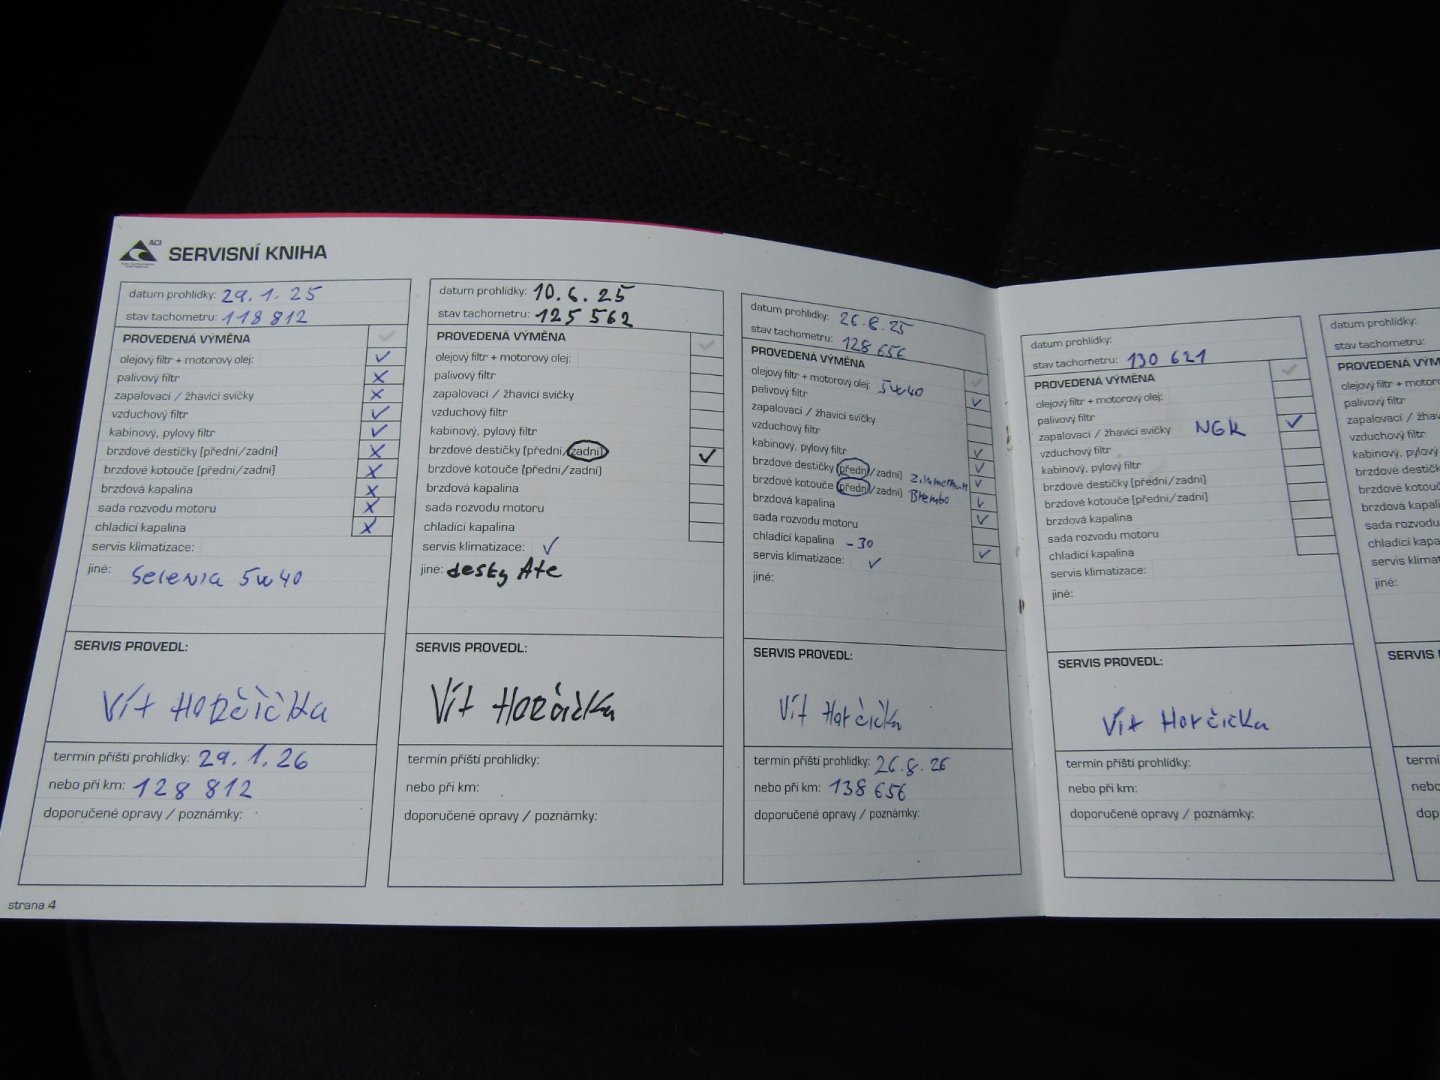 ACI
SERVISNÍ KNIHA
datum prohlídky: 29. 1. 25
stav tachometru: 118 812
PROVEDENÁ VÝMĚNA ✓
olejový filtr + motorový olej: ✓
palivový filtr x
zapalovací / žhavící svíčky x
vzduchový filtr ✓
kabinový, pylový filtr ✓
brzdové destičky [přední/zadní] x
brzdové kotouče [přední/zadní] x
brzdová kapalina x
sada rozvodu motoru x
chladící kapalina x
servis klimatizace:
jiné: Selenia 5w40
SERVIS PROVEDL:
Vít Horčička
termín příští prohlídky: 29. 1. 26
nebo při km: 128 812
doporučené opravy / poznámky:
strana 4
datum prohlídky: 10. 6. 25
stav tachometru: 125 562
PROVEDENÁ VÝMĚNA ✓
olejový filtr + motorový olej:
palivový filtr
zapalovací / žhavící svíčky
vzduchový filtr
kabinový, pylový filtr
brzdové destičky [přední/zadní] ✓
brzdové kotouče [přední/zadní]
brzdová kapalina
sada rozvodu motoru
chladící kapalina
servis klimatizace: ✓
jiné: desky Ate
SERVIS PROVEDL:
Vít Horčička
termín příští prohlídky:
nebo při km:
doporučené opravy / poznámky:
datum prohlídky: 26. 8. 25
stav tachometru: 128 656
PROVEDENÁ VÝMĚNA ✓
olejový filtr + motorový olej: 5w40 ✓
palivový filtr
zapalovací / žhavící svíčky
vzduchový filtr ✓
kabinový, pylový filtr ✓
brzdové destičky [přední/zadní] ✓
brzdové kotouče [přední/zadní] Brembo ✓
brzdová kapalina ✓
sada rozvodu motoru
chladící kapalina -30 ✓
servis klimatizace: ✓
jiné:
SERVIS PROVEDL:
Vít Horčička
termín příští prohlídky: 26. 8. 26
nebo při km: 138 656
doporučené opravy / poznámky:
datum prohlídky:
stav tachometru: 130 621
PROVEDENÁ VÝMĚNA ✓
olejový filtr + motorový olej:
palivový filtr
zapalovací / žhavící svíčky NGK ✓
vzduchový filtr
kabinový, pylový filtr
brzdové destičky [přední/zadní]
brzdové kotouče [přední/zadní]
brzdová kapalina
sada rozvodu motoru
chladící kapalina
servis klimatizace:
jiné:
SERVIS PROVEDL:
Vít Horčička
termín příští prohlídky:
nebo při km:
doporučené opravy / poznámky:
datum prohlídky:
stav tachometru:
PROVEDENÁ VÝM
olejový filtr + motoro
palivový filtr
zapalovací / žhav
vzduchový filtr
kabinový, pylový
brzdové destičk
brzdové kotouč
brzdová kapalin
sada rozvodu m
chladící kapalin
servis klimatiza
jiné:
SERVIS
termí
nebo
dop